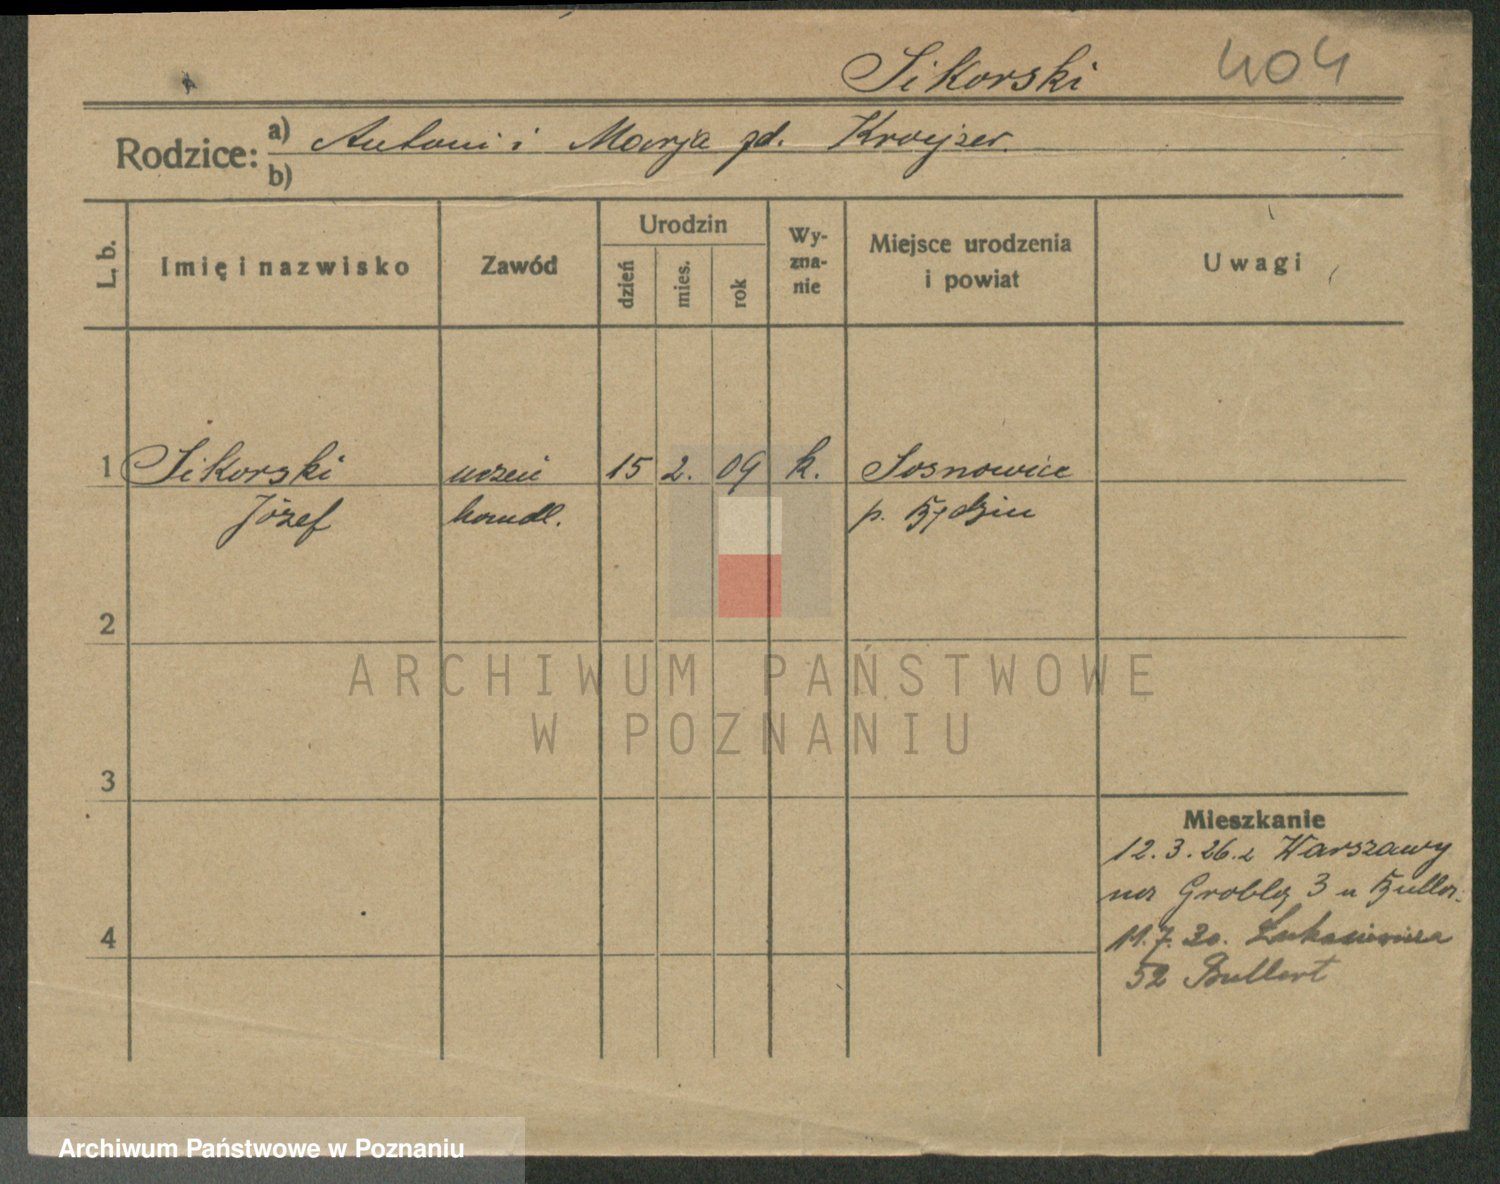 Sikorski 404
Rodzice: a) Antoni i Marja zd. Krajzer.
b)
L. b. Imię i nazwisko Zawód Urodzin dzień mies. rok Wyznanie Miejsce urodzenia i powiat Uwagi
1 Sikorski uczeń 15 2. 09 k. Sosnowice
Józef handl. p. Będzin
2
3
Mieszkanie
12.3.26. z Warszawy
na Grobla 3 u
4
11.7.30. Łukasiewicza
52 Bullert
ARCHIWUM PAŃSTWOWE
W POZNANIU
Archiwum Państwowe w Poznaniu